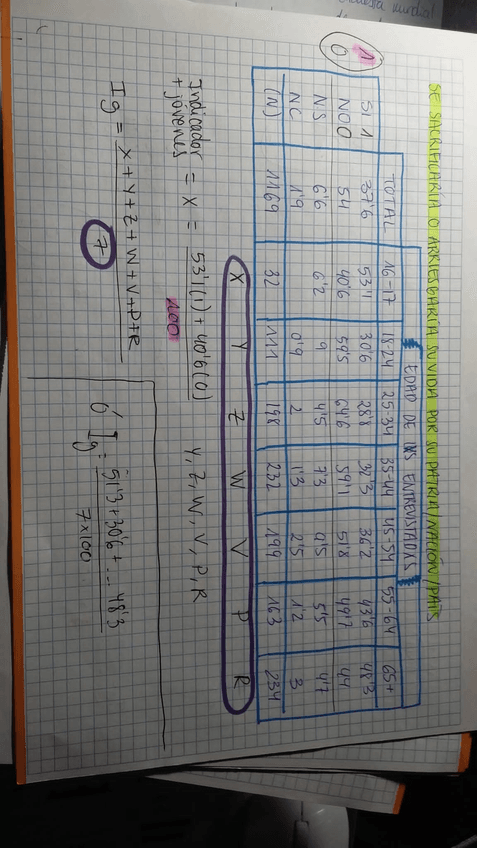 SE SACRIFICARÍA O ARRIESGARÍA SU VIDA POR SU PATRIA/NACIÓN/PAÍS
EDAD DE LOS ENTREVISTADOS
TOTAL 16-17 18-24 25-34 35-44 45-54 55-64 65+
1 SI 1 37'6 53'1 30'6 28'8 32'3 36'2 43'6 48'3
0 NO 0 54 40'6 59'5 64'6 59'1 51'8 49'7 44
NS 6'6 6'2 9 4'5 7'3 9'5 5'5 4'7
NC 1'9 0'9 2 1'3 2'5 1'2 3
(N) 1169 32 111 198 232 199 163 234
X Y Z W V P R
Indicador + jóvenes = X = 53'1(1) + 40'6(0) / 100 Y, Z, W, V, P, R
Ig = X+Y+Z+W+V+P+R / 7
ó Ig = 51'3+30'6+ ... 48'3 / 7x100